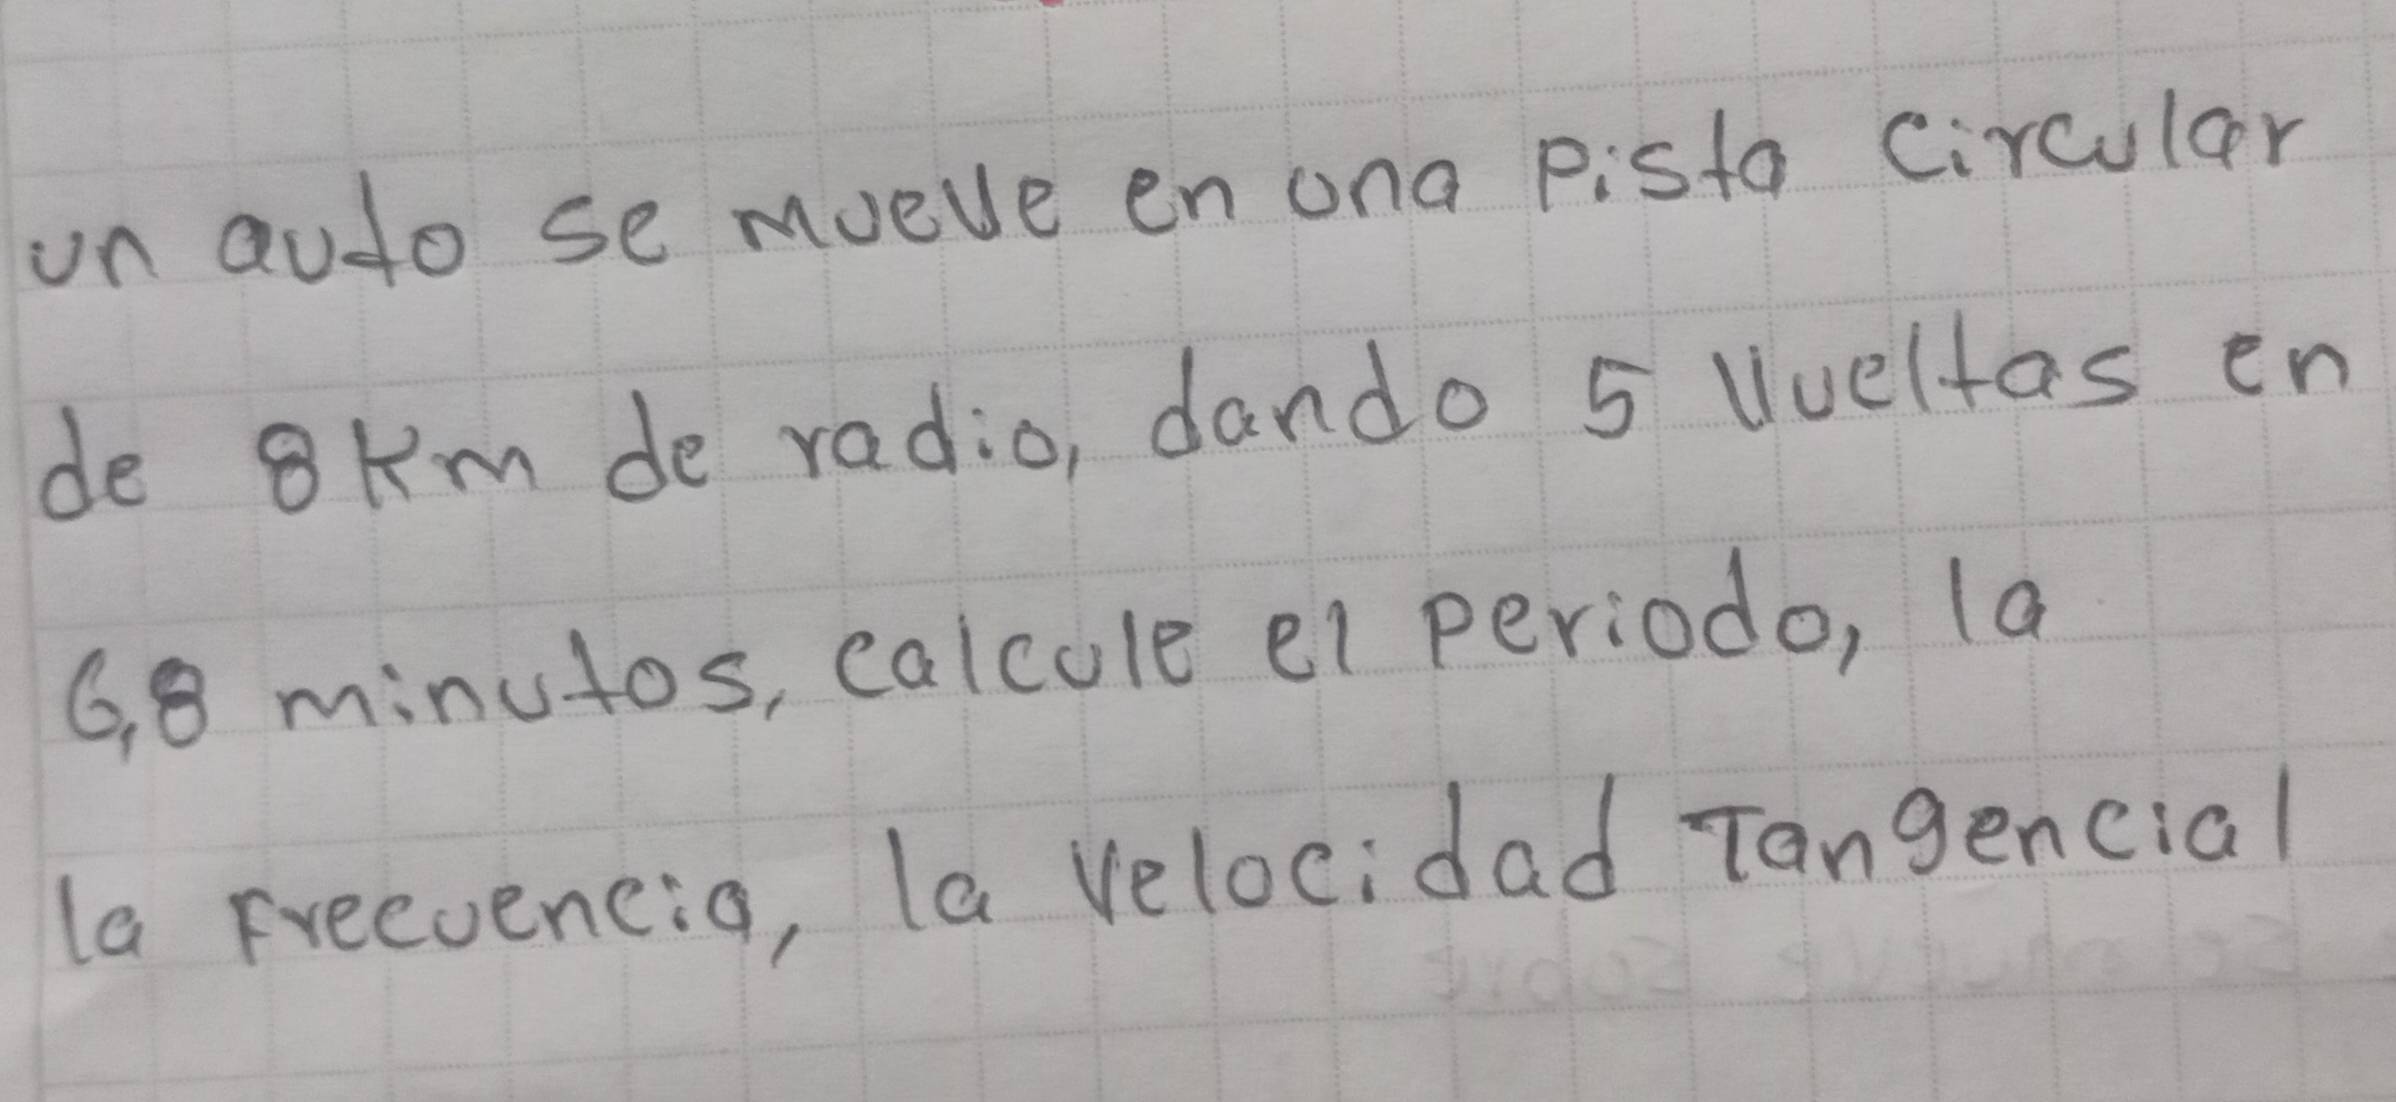 un auto se mueve en una Pista circular
de 8 Km de radio, dando 5 Vueltas en
6,8 minutos, calcule el periodo, la
la Frecuencia, la Velocidad Tangencial